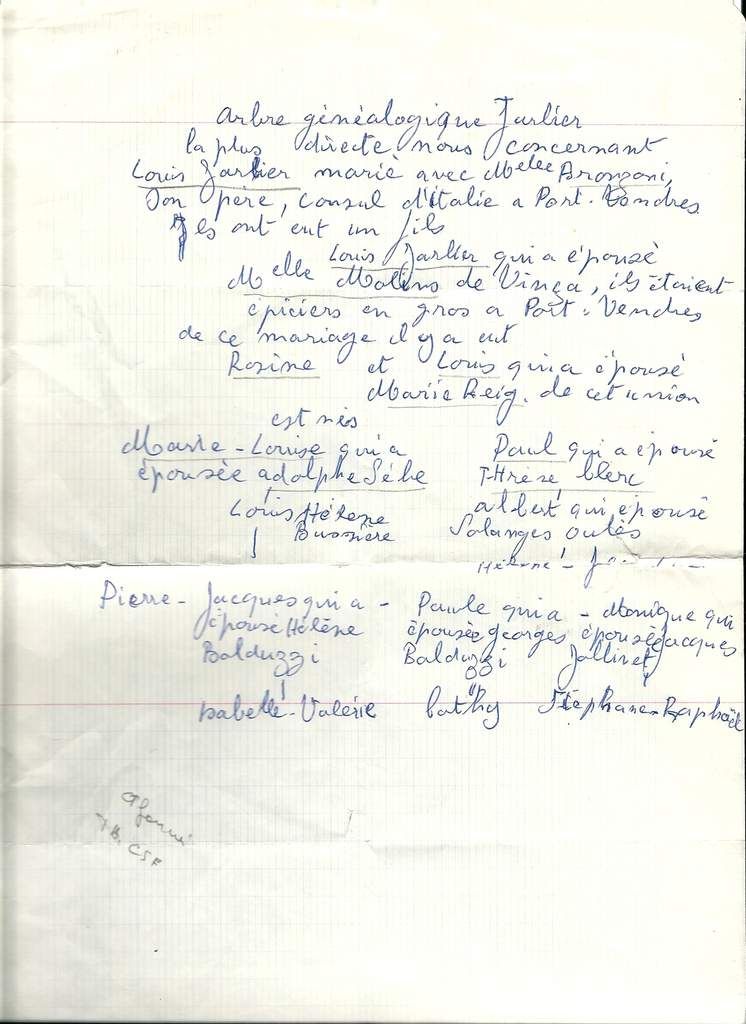 Arbre généalogique Jarlier
la plus directe nous concernant
Louis Jarlier marié avec Melle Bronzoni,
Son père, consul d'Italie a Port-Vendres
Ils ont eut un fils
Louis Jarlier qui a épousé
Melle Molins de Vinça, ils étaient
épiciers en gros a Port-Vendres
de ce mariage il y a eut
Rosine et Louis qui a épousé
Marie Reig. de cet union
est nés
Marie-Louise qui a
épousée adolphe Sèbe
Paul qui a épousé
Thrèse blerc
Louis Hélène
Bussière
albert qui épousé
Solanges oulès
Hélène -
Pierre - Jacques qui a - Paule qui a - Monique qui
épousé Hélène épousée georges épousé jacques
Balduzzi Balduzzi Jallinet
Isabelle - Valérie Cathy Stéphane - Raphaël
CSF